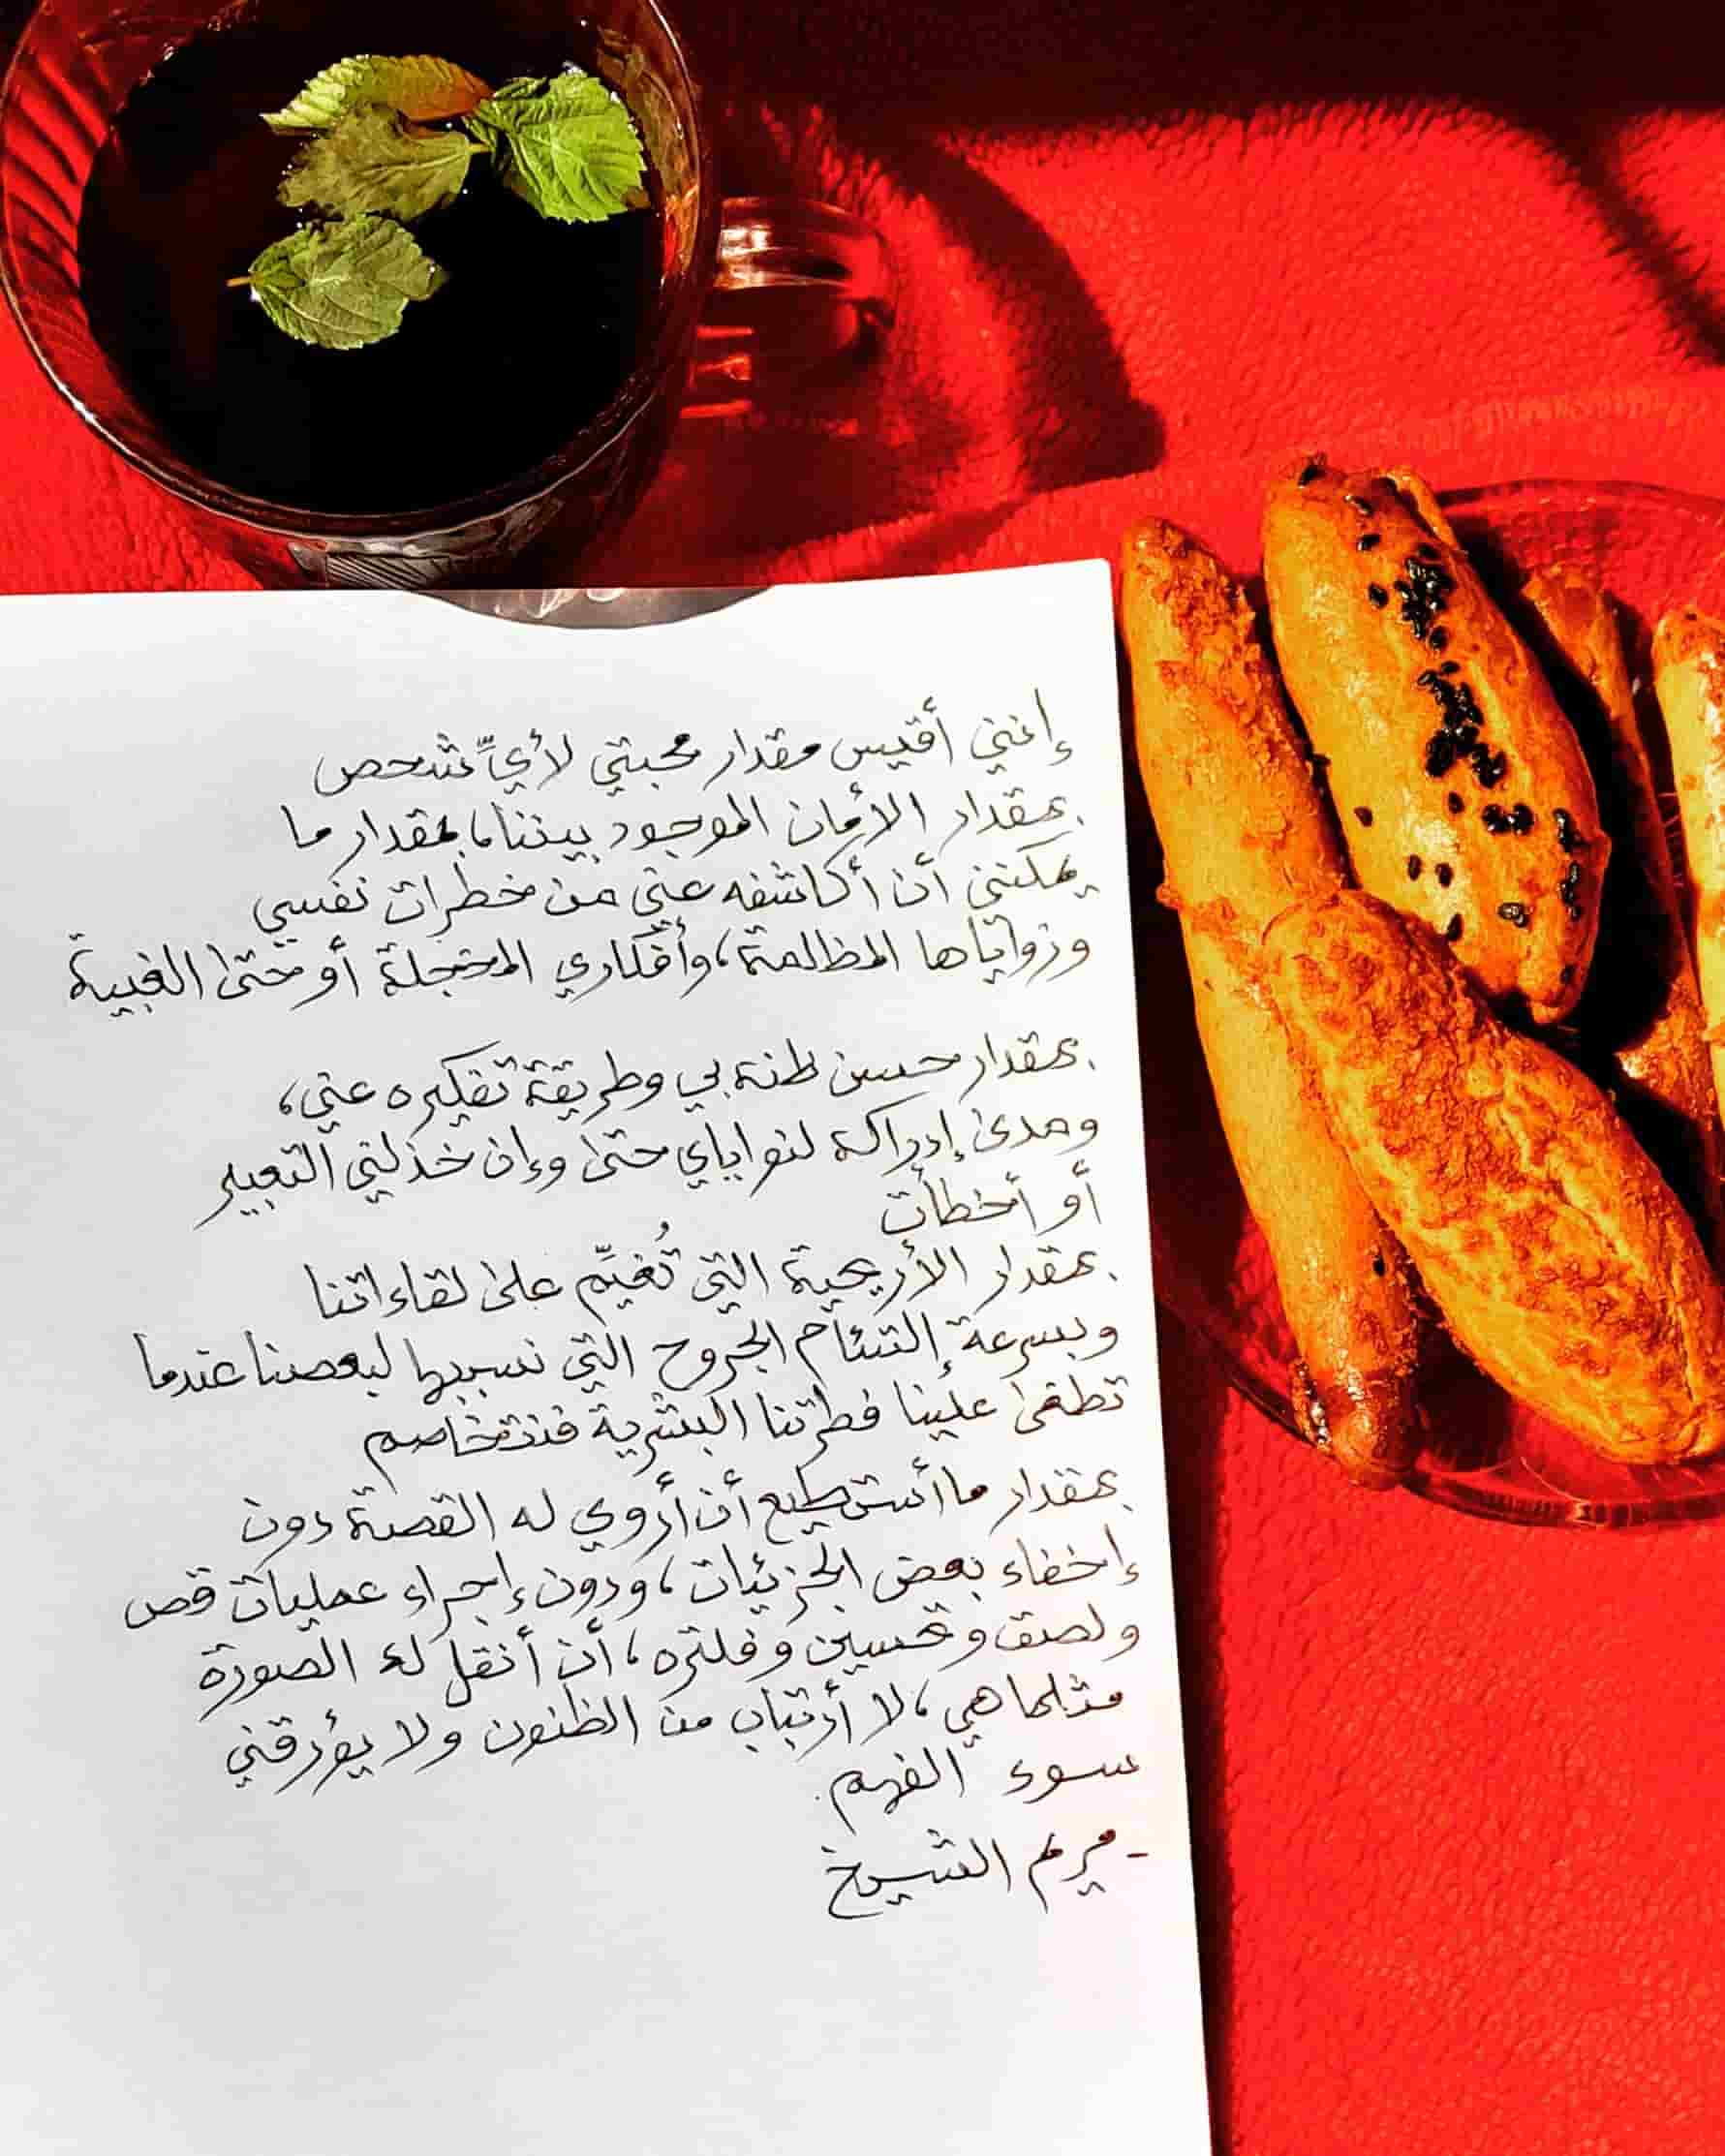 إنني أقيس مقدار محبتي لأيِّ شخص
بمقدار الأمان الموجود بيننا، بمقدار ما
يمكنني أن أكاشفه عني من خطرات نفسي
وزواياها المظلمة، وأفكاري المخجلة أو حتى الغبية
بمقدار حسن ظنه بي وطريقة تفكيره عني،
ومدى إدراكه لنواياي حتى وإن خذلني التعبير
أو أخطأت
بمقدار الأريحية التي تُغيِّم على لقاءاتنا
وبسرعة إلتئام الجروح التي نسببها لبعضنا عندما
تطغى علينا فطرتنا البشرية فنتخاصم
بمقدار ما أستطيع أن أروي له القصة دون
إخفاء بعض الجزئيات، ودون إجراء عمليات قص
ولصق وتحسين وفلتره، أن أنقل له الصورة
مثلما هي، لا أرتاب من الظنون ولا يؤرقني
سوء الفهم.
- مريم الشيخ